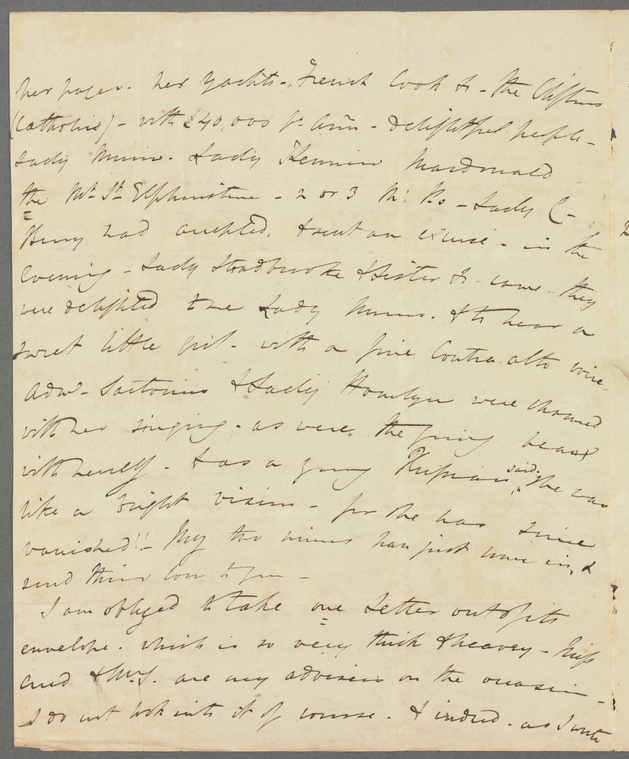 her pages. her yachts - French Cook &c - the Cliftons
(Catholics) - with £40,000 pr. ann - delightful people -
Lady Munro. Lady Macdonald
the Mt. St. Elphinstone - 2 or 3 M: Ps - Lady C -
Henry had accepted, & sent an excuse - in the
Evening - Lady Stradbroke & Sister &c came they
were delighted to see Lady Munro. & to hear a
sweet little girl. with a fine Contra alto voice
Adml. Sartorius & Lady were charmed
with her singing. as were the young beaux
with herself. & as a young Russian said. "She was
like a bright vision - for she has since
vanished"!! - My two have just come in, &
send their love to you -
I am obliged to take one Letter out of its
envelope. which is so very thick & heavy - Miss
and & Mrs J. are my advisers on the occasion -
I do not look into it of course. & indeed. as I write